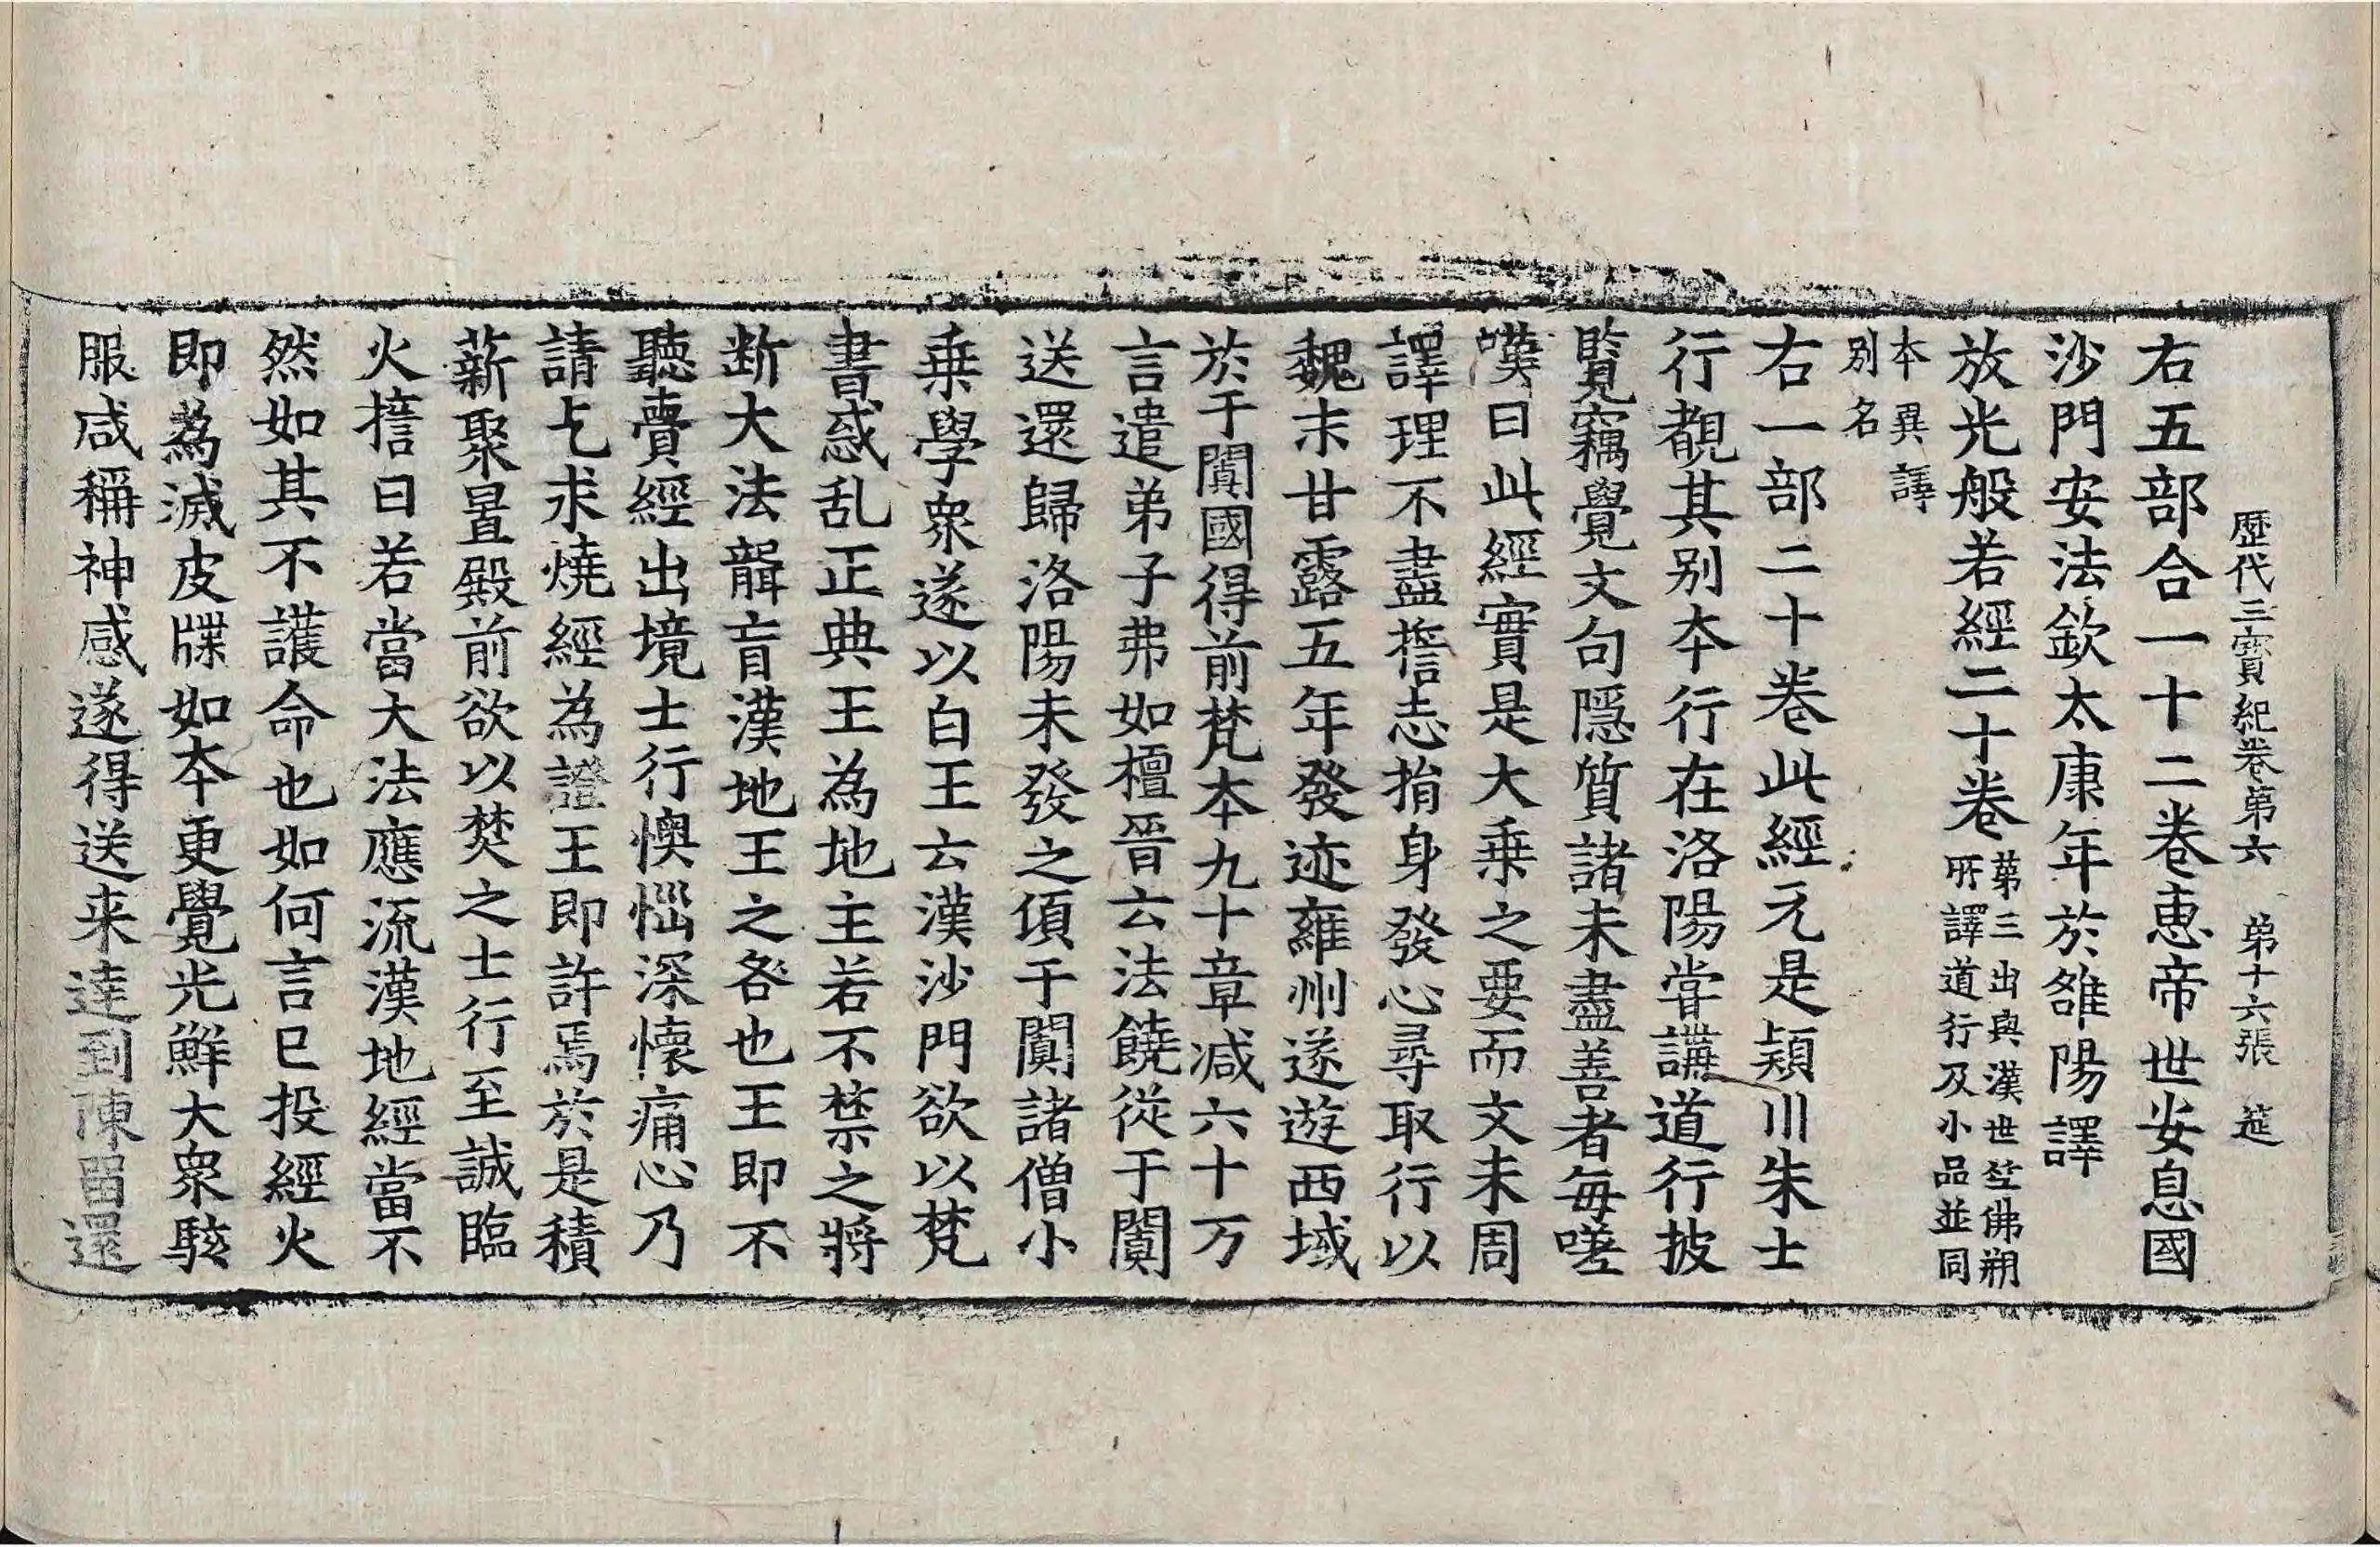 歷代三寶紀卷第六　第十六張　莚
右五部合一十二卷惠帝世安息國
沙門安法欽太康年於雒陽譯
放光般若經二十卷第三出與漢世竺佛朔
所譯道行及小品並同
本異譯
別名
右一部二十卷此經元是潁川朱士
行覩其別本行在洛陽甞講道行披
覧竊覺文句隱質諸未盡善者每嗟
嘆曰此經實是大乗之要而文未周
譯理不盡擔志捐身發心尋取行以
魏末甘露五年發迹雍州遂遊西域
於于闐國得前梵夲九十章减六十万
言遣弟子弗如檀晉云法饒從于闐
送還歸洛陽未發之頃于闐諸僧小
乗學衆遂以白王云漢沙門欲以梵
書惑乱正典王為地主若不禁之將
断大法聾盲漢地王之咎也王即不
聽賷經出境士行懊惱深懷痛心乃
請乞求燒經為證王即許焉於是積
薪聚置殿前欲以焚之士行至誠臨
火擔曰若當大法應流漢地經當不
然如其不護命也如何言已投經火
即為滅皮牒如夲更覺光鮮大衆駭
服咸稱神感遂得送来達到陳留還